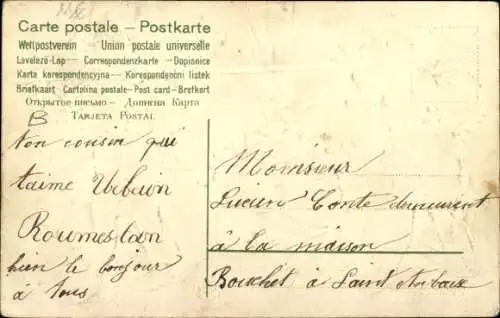 Carte postale – Postkarte
Weltpostverein – Union postale universelle
Levelező-Lap – Correspondenzkarte – Dopisnice
Karta korespondencyjna – Korespondeční listek
Briefkaart – Cartolina postale – Post card – Brefkort
Открытое письмо – Дописна Карта
Tarjeta Postal
B
ton cousin qui
t'aime Urbain
Roumestan
bien le bonjour
à tous
Monsieur
Lucien Conte demeurent
à la maison
Bouchet à Saint